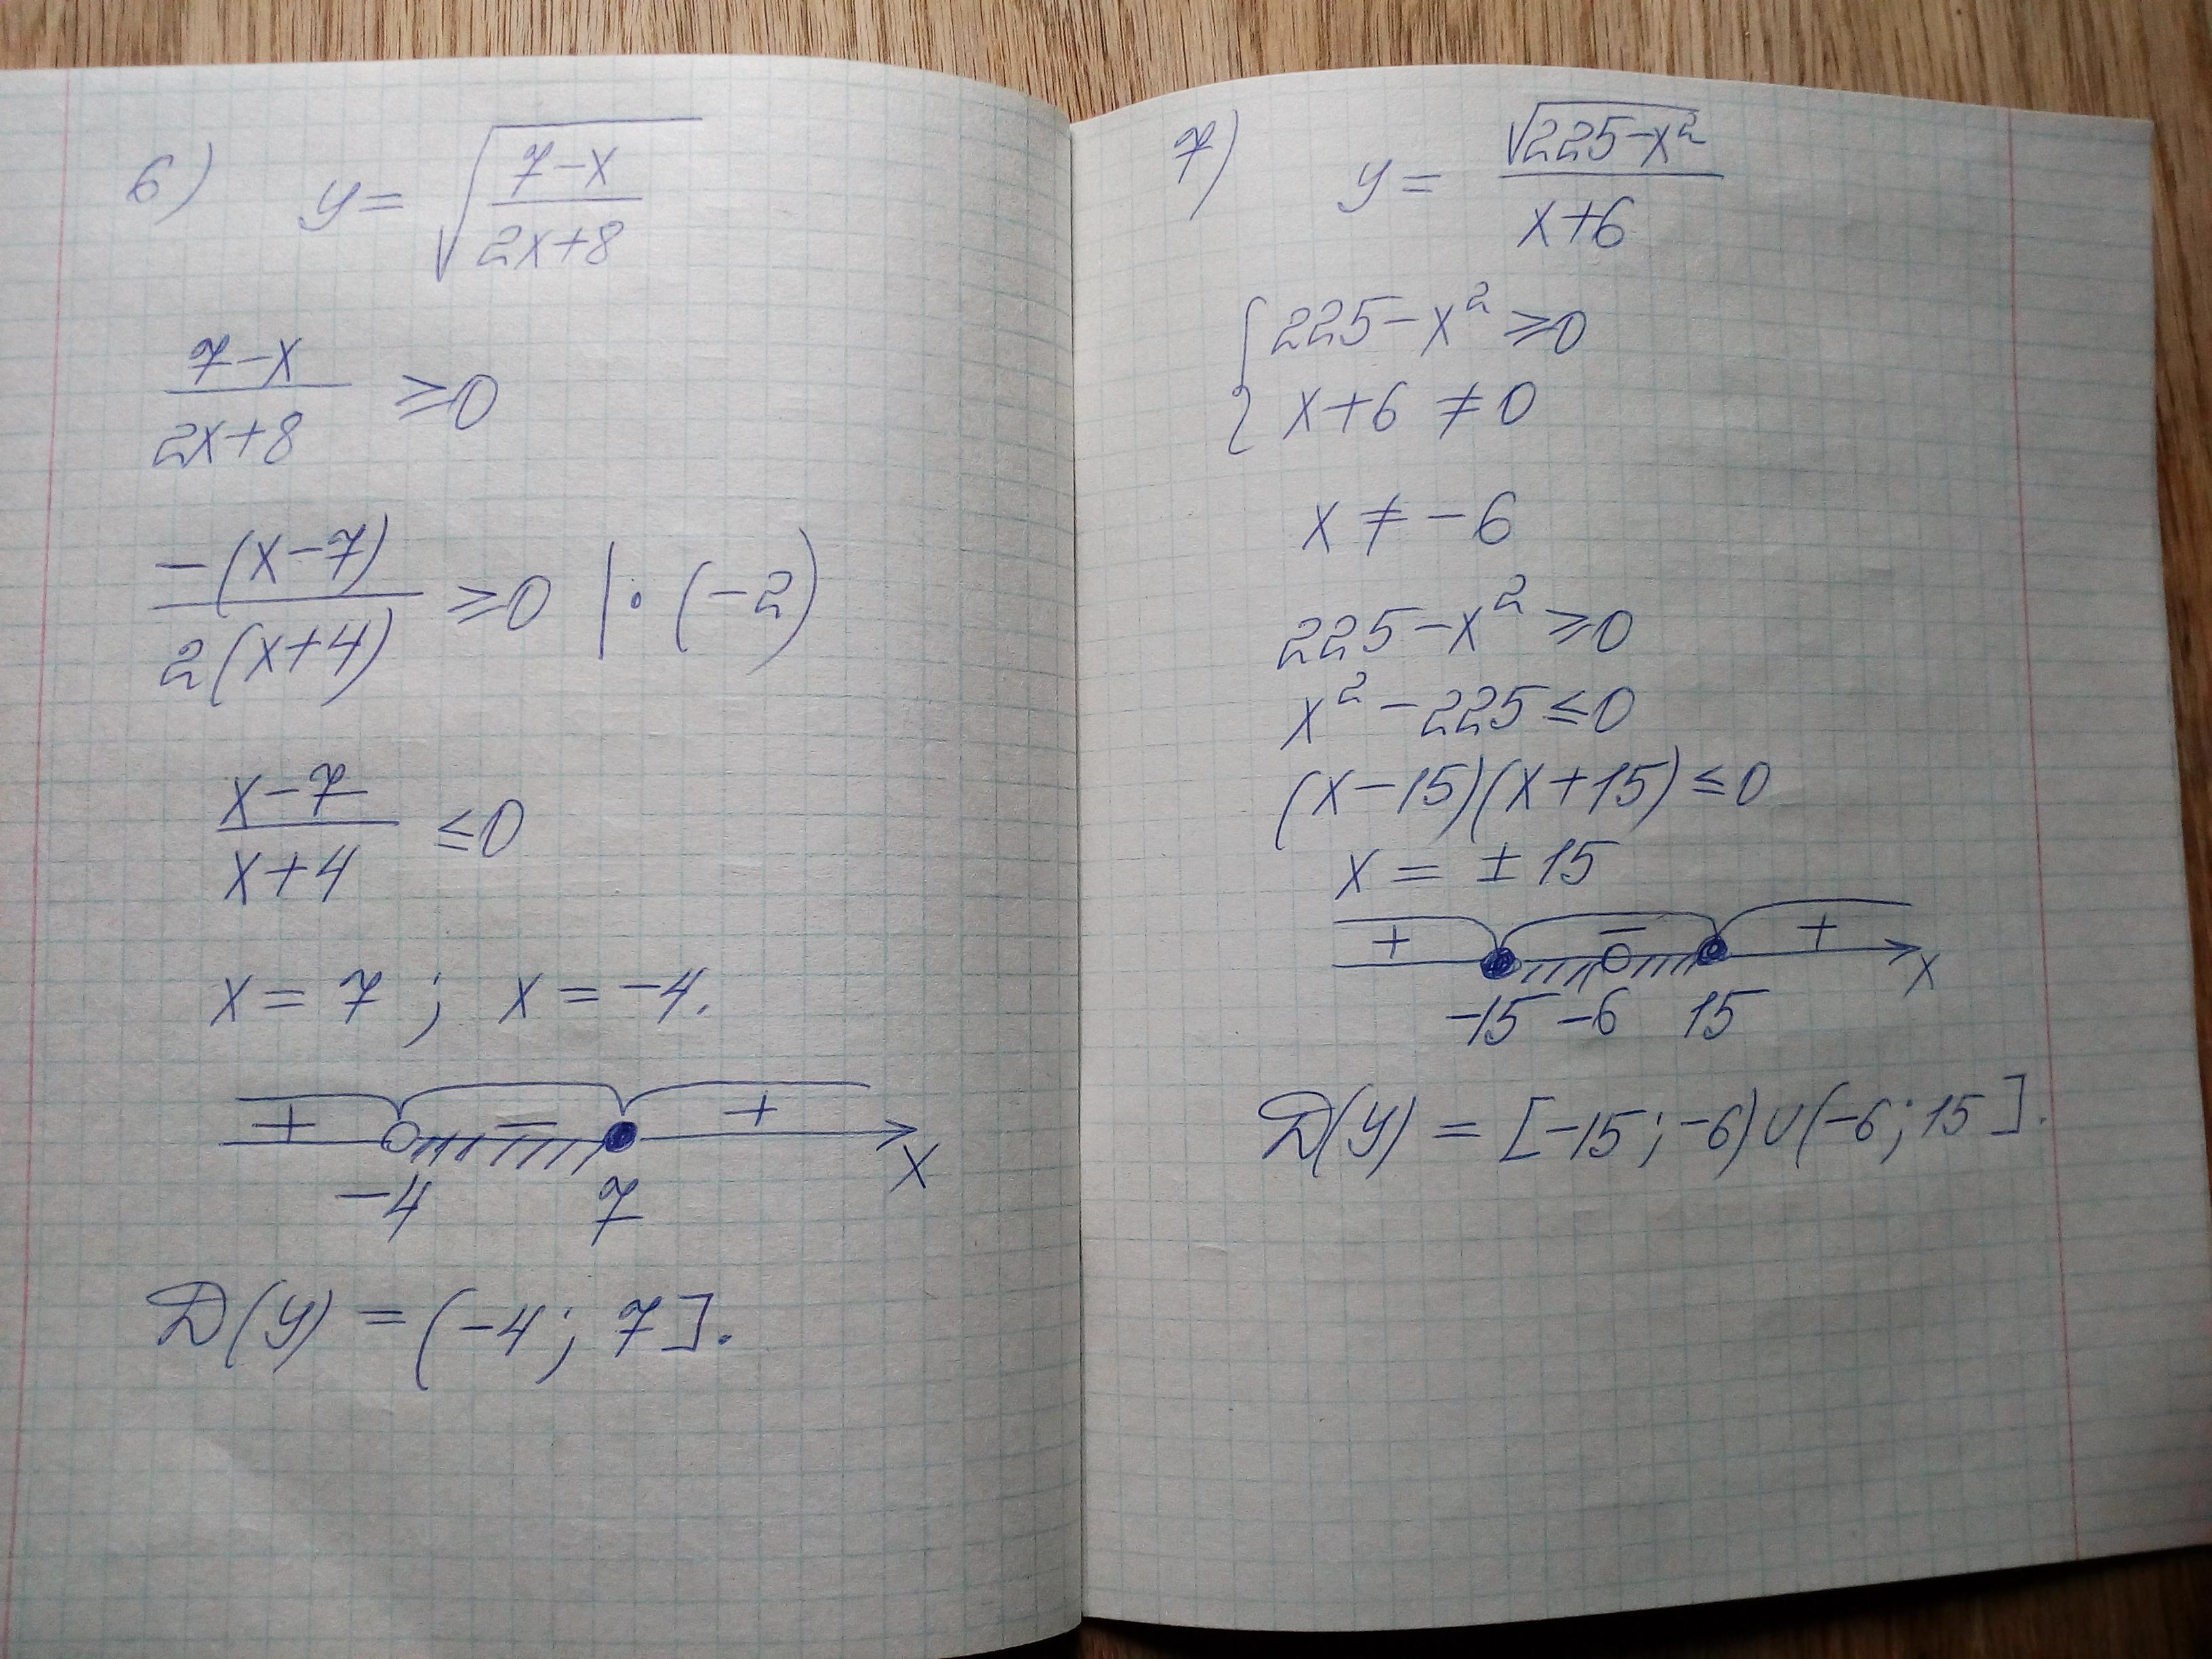 6) y = √((7-x)/(2x+8))
(7-x)/(2x+8) ≥0
-(x-7)/(2(x+4)) ≥0 | · (-2)
(x-7)/(x+4) ≤0
x = 7 ; x = -4.
+ - + x
-4 7
D(y) = (-4; 7].
7) y = √(225-x²)/(x+6)
{225-x² ≥0
x+6 ≠0
x ≠ -6
225-x² ≥0
x²-225 ≤0
(x-15)(x+15) ≤0
x = ±15
+ - + x
-15 -6 15
D(y) = [-15; -6)∪(-6; 15].